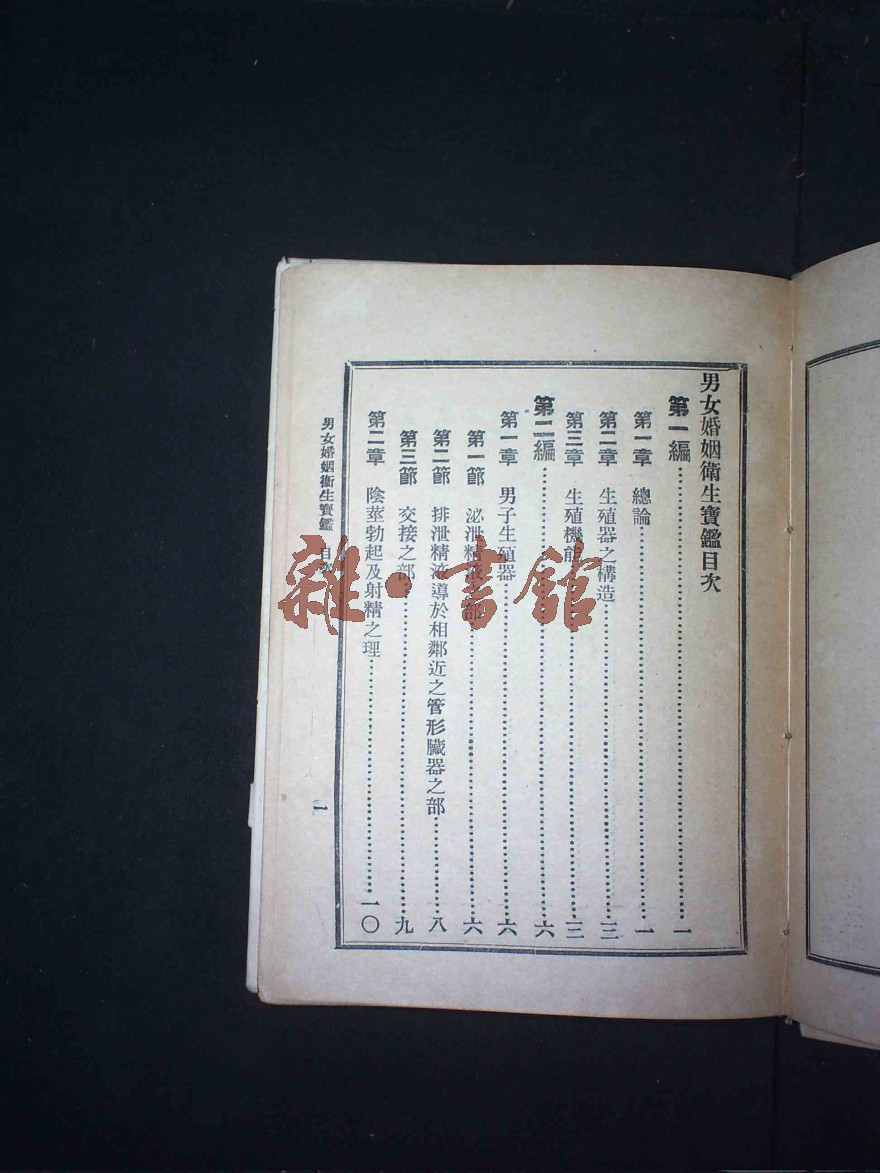 男女婚姻衛生寶鑑目次
第一編……一
第一章 總論……一
第二章 生殖器之構造……三
第三章 生殖機能……三
第二編……六
第一章 男子生殖器……六
第一節 泌泄精液之部……六
第二節 排泄精液導於相鄰近之管形臟器之部……八
第三節 交接之部……九
第二章 陰莖勃起及射精之理……一〇
男女婚姻衛生寶鑑 目次
一
雜·書館